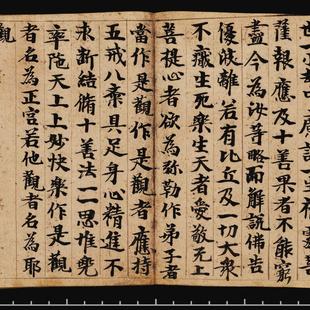 世一小劫中廣說一生補處菩
薩報應及十善果者不能窮
盡今為汝等略而解說佛告
優波離若有比丘及一切大衆
不厭生死樂生天者愛敬无上
菩提心者欲為弥勒作弟子者
當作是觀作是觀者應持
五戒八齋具足身心精進不
求断結脩十善法一一思惟兜
率陁天上上妙快樂作是觀
者名為正官若他觀者名為耶
觀